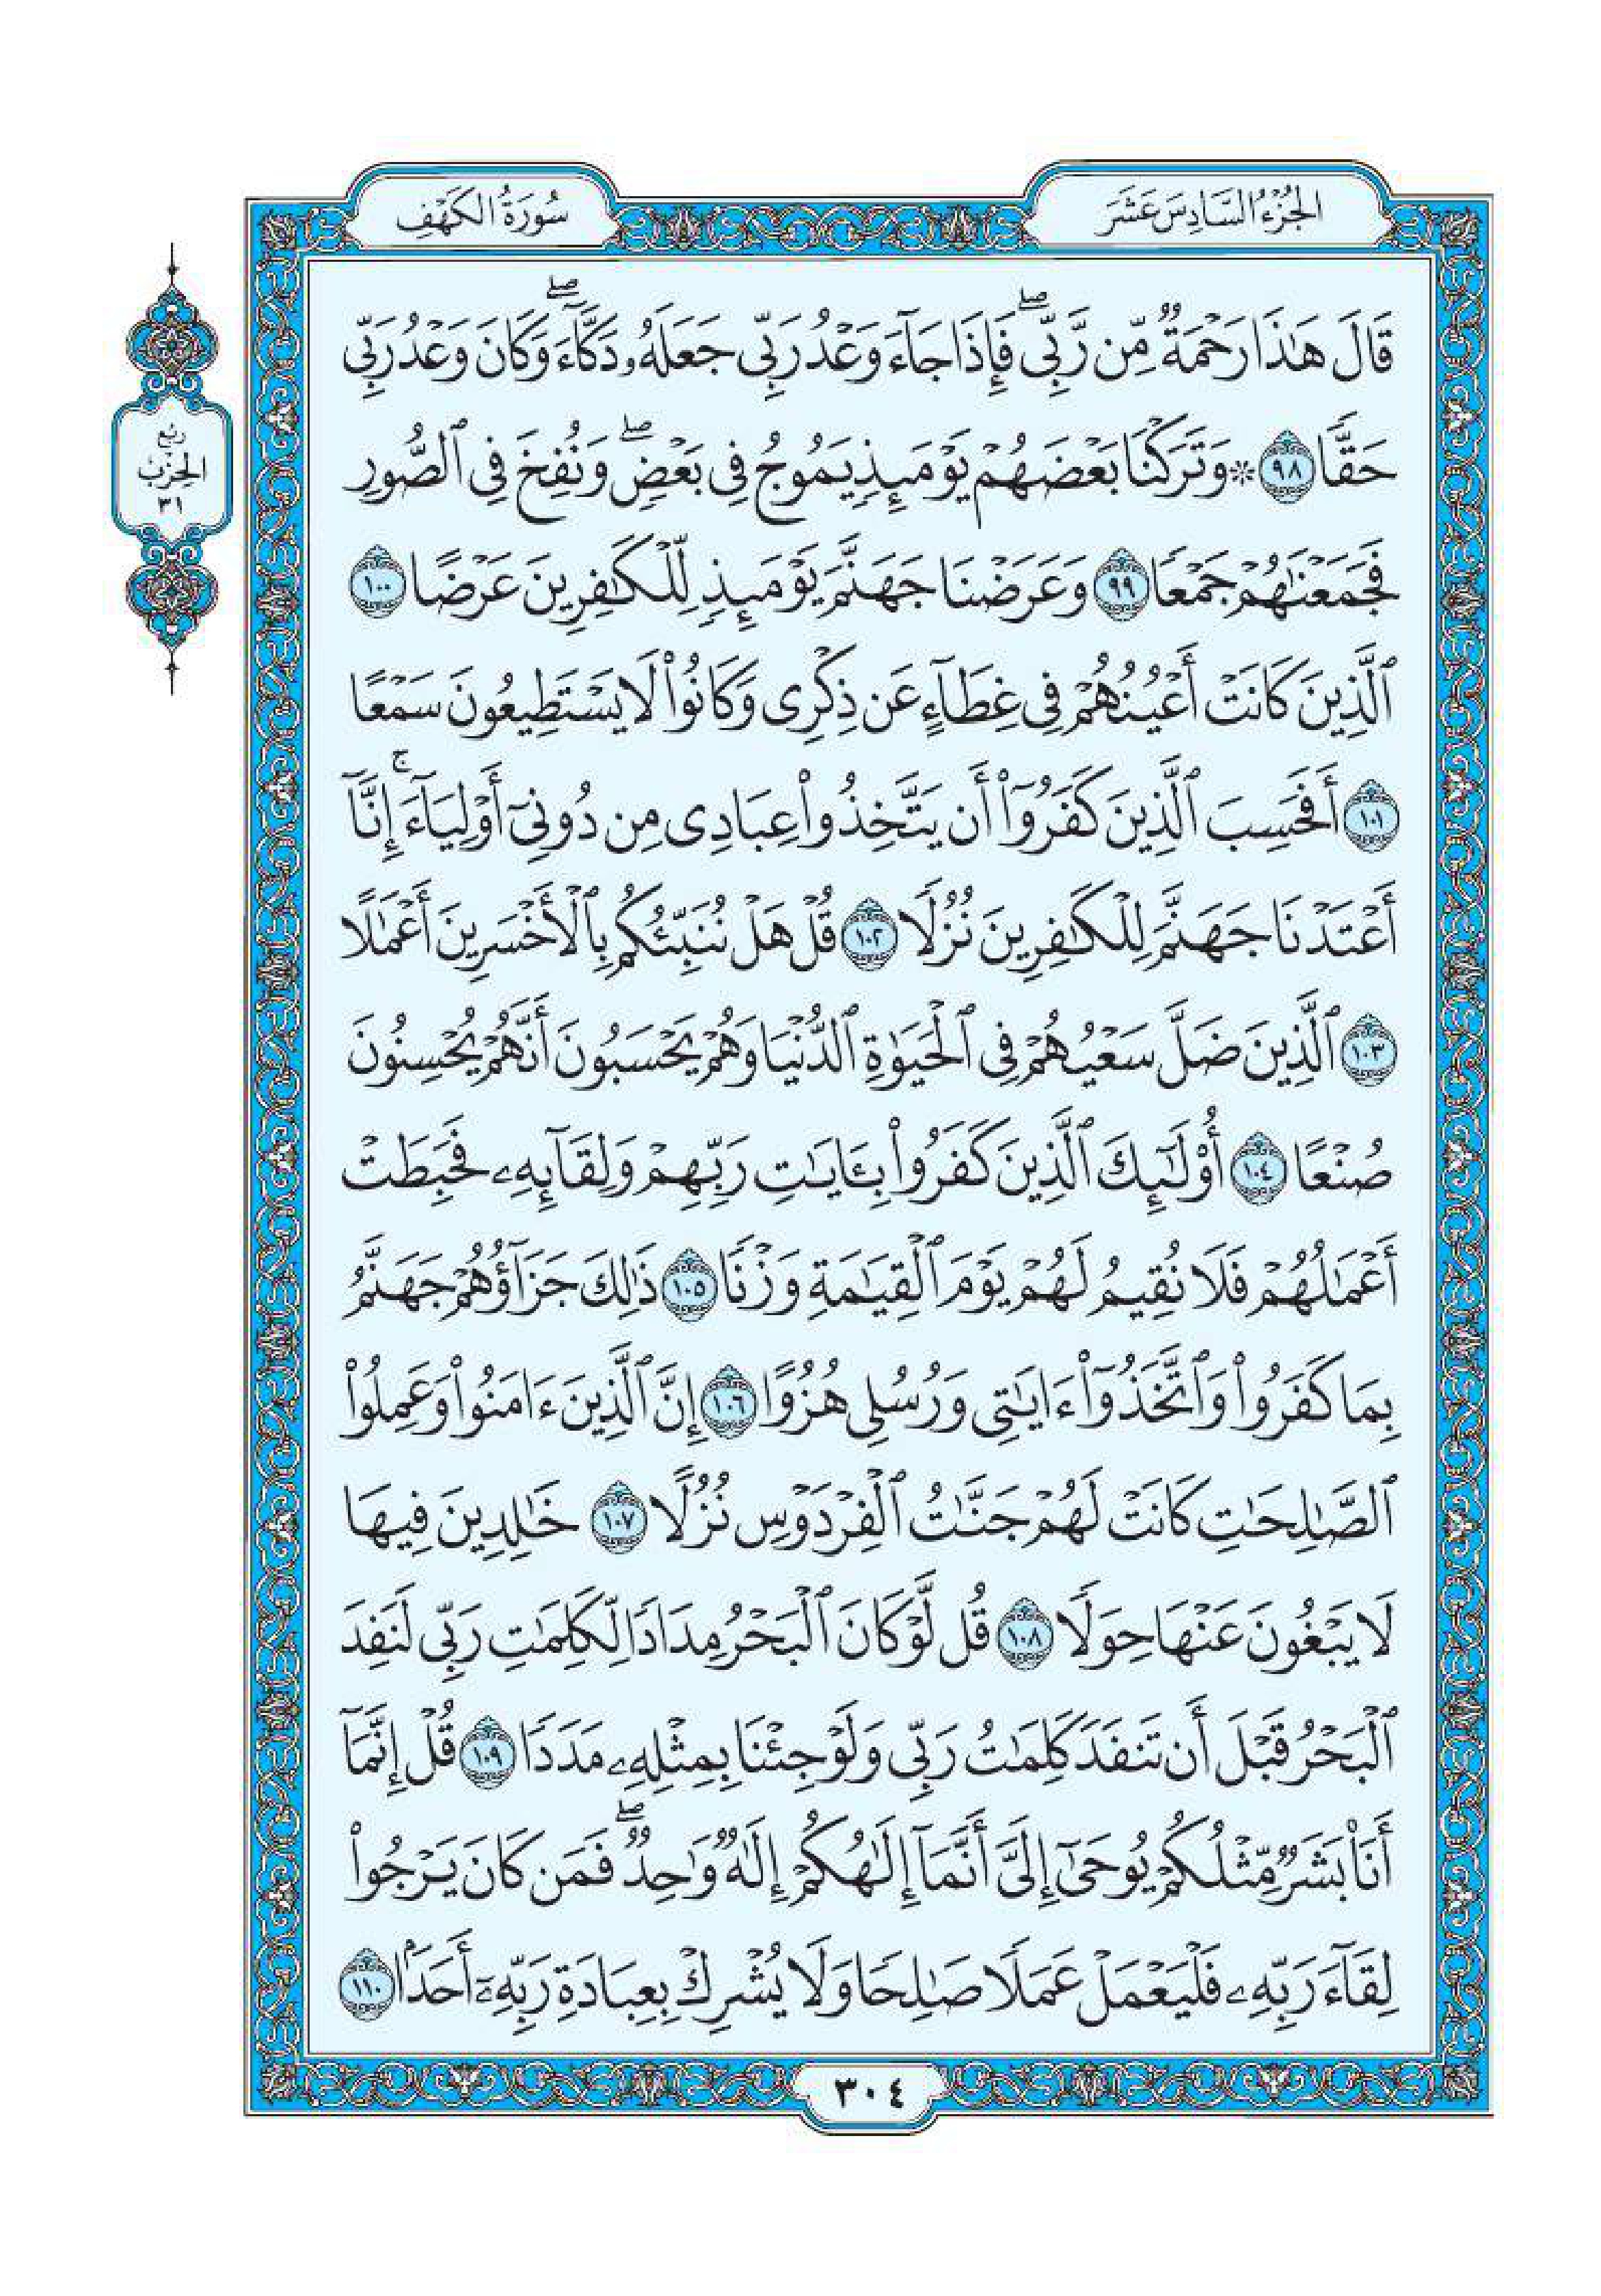 الجُزْءُ السَّادِسَ عَشَرَ
سُورَةُ الكَهْفِ
قَالَ هَٰذَا رَحْمَةٌ مِّن رَّبِّيۖ فَإِذَا جَآءَ وَعْدُ رَبِّي جَعَلَهُۥ دَكَّآءَۖ وَكَانَ وَعْدُ رَبِّي
حَقًّا ٩٨ ۞ وَتَرَكْنَا بَعْضَهُمْ يَوْمَئِذٖ يَمُوجُ فِي بَعْضٖۖ وَنُفِخَ فِي ٱلصُّورِ
فَجَمَعْنَٰهُمْ جَمْعٗا ٩٩ وَعَرَضْنَا جَهَنَّمَ يَوْمَئِذٖ لِّلْكَٰفِرِينَ عَرْضًا ١٠٠
ٱلَّذِينَ كَانَتْ أَعْيُنُهُمْ فِي غِطَآءٍ عَن ذِكْرِي وَكَانُواْ لَا يَسْتَطِيعُونَ سَمْعًا
١٠١ أَفَحَسِبَ ٱلَّذِينَ كَفَرُوٓاْ أَن يَتَّخِذُواْ عِبَادِي مِن دُونِيٓ أَوْلِيَآءَۚ إِنَّآ
أَعْتَدْنَا جَهَنَّمَ لِلْكَٰفِرِينَ نُزُلٗا ١٠٢ قُلْ هَلْ نُنَبِّئُكُم بِٱلْأَخْسَرِينَ أَعْمَٰلًا
١٠٣ ٱلَّذِينَ ضَلَّ سَعْيُهُمْ فِي ٱلْحَيَوٰةِ ٱلدُّنْيَا وَهُمْ يَحْسَبُونَ أَنَّهُمْ يُحْسِنُونَ
صُنْعًا ١٠٤ أُوْلَٰٓئِكَ ٱلَّذِينَ كَفَرُواْ بِـَٔايَٰتِ رَبِّهِمْ وَلِقَآئِهِۦ فَحَبِطَتْ
أَعْمَٰلُهُمْ فَلَا نُقِيمُ لَهُمْ يَوْمَ ٱلْقِيَٰمَةِ وَزْنٗا ١٠٥ ذَٰلِكَ جَزَآؤُهُمْ جَهَنَّمُ
بِمَا كَفَرُواْ وَٱتَّخَذُوٓاْ ءَايَٰتِي وَرُسُلِي هُزُوًا ١٠٦ إِنَّ ٱلَّذِينَ ءَامَنُواْ وَعَمِلُواْ
ٱلصَّٰلِحَٰتِ كَانَتْ لَهُمْ جَنَّٰتُ ٱلْفِرْدَوْسِ نُزُلًا ١٠٧ خَٰلِدِينَ فِيهَا
لَا يَبْغُونَ عَنْهَا حِوَلٗا ١٠٨ قُل لَّوْ كَانَ ٱلْبَحْرُ مِدَادٗا لِّكَلِمَٰتِ رَبِّي لَنَفِدَ
ٱلْبَحْرُ قَبْلَ أَن تَنفَدَ كَلِمَٰتُ رَبِّي وَلَوْ جِئْنَا بِمِثْلِهِۦ مَدَدٗا ١٠٩ قُلْ إِنَّمَآ
أَنَا۠ بَشَرٞ مِّثْلُكُمْ يُوحَىٰٓ إِلَيَّ أَنَّمَآ إِلَٰهُكُمْ إِلَٰهٞ وَٰحِدٞۖ فَمَن كَانَ يَرْجُواْ
لِقَآءَ رَبِّهِۦ فَلْيَعْمَلْ عَمَلٗا صَٰلِحٗا وَلَا يُشْرِكْ بِعِبَادَةِ رَبِّهِۦٓ أَحَدَۢا ١١٠
رُبُع
الحِزْبِ
٣١
٣٠٤